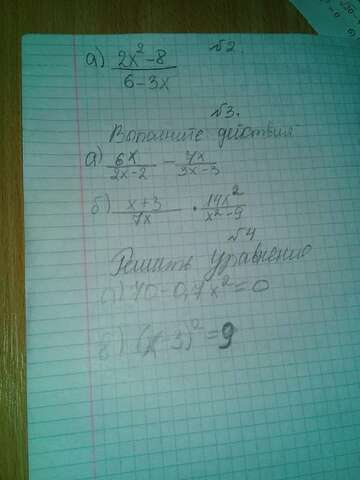 №2.
а) (2x²-8)/(6-3x)
№3.
Выполните действия
а) 6x/(2x-2) - 7x/(3x-3)
б) (x+3)/7x · 14x²/(x²-9)
№4
Решить уравнение
а) 70-0,7x²=0
б) (x-3)²=9